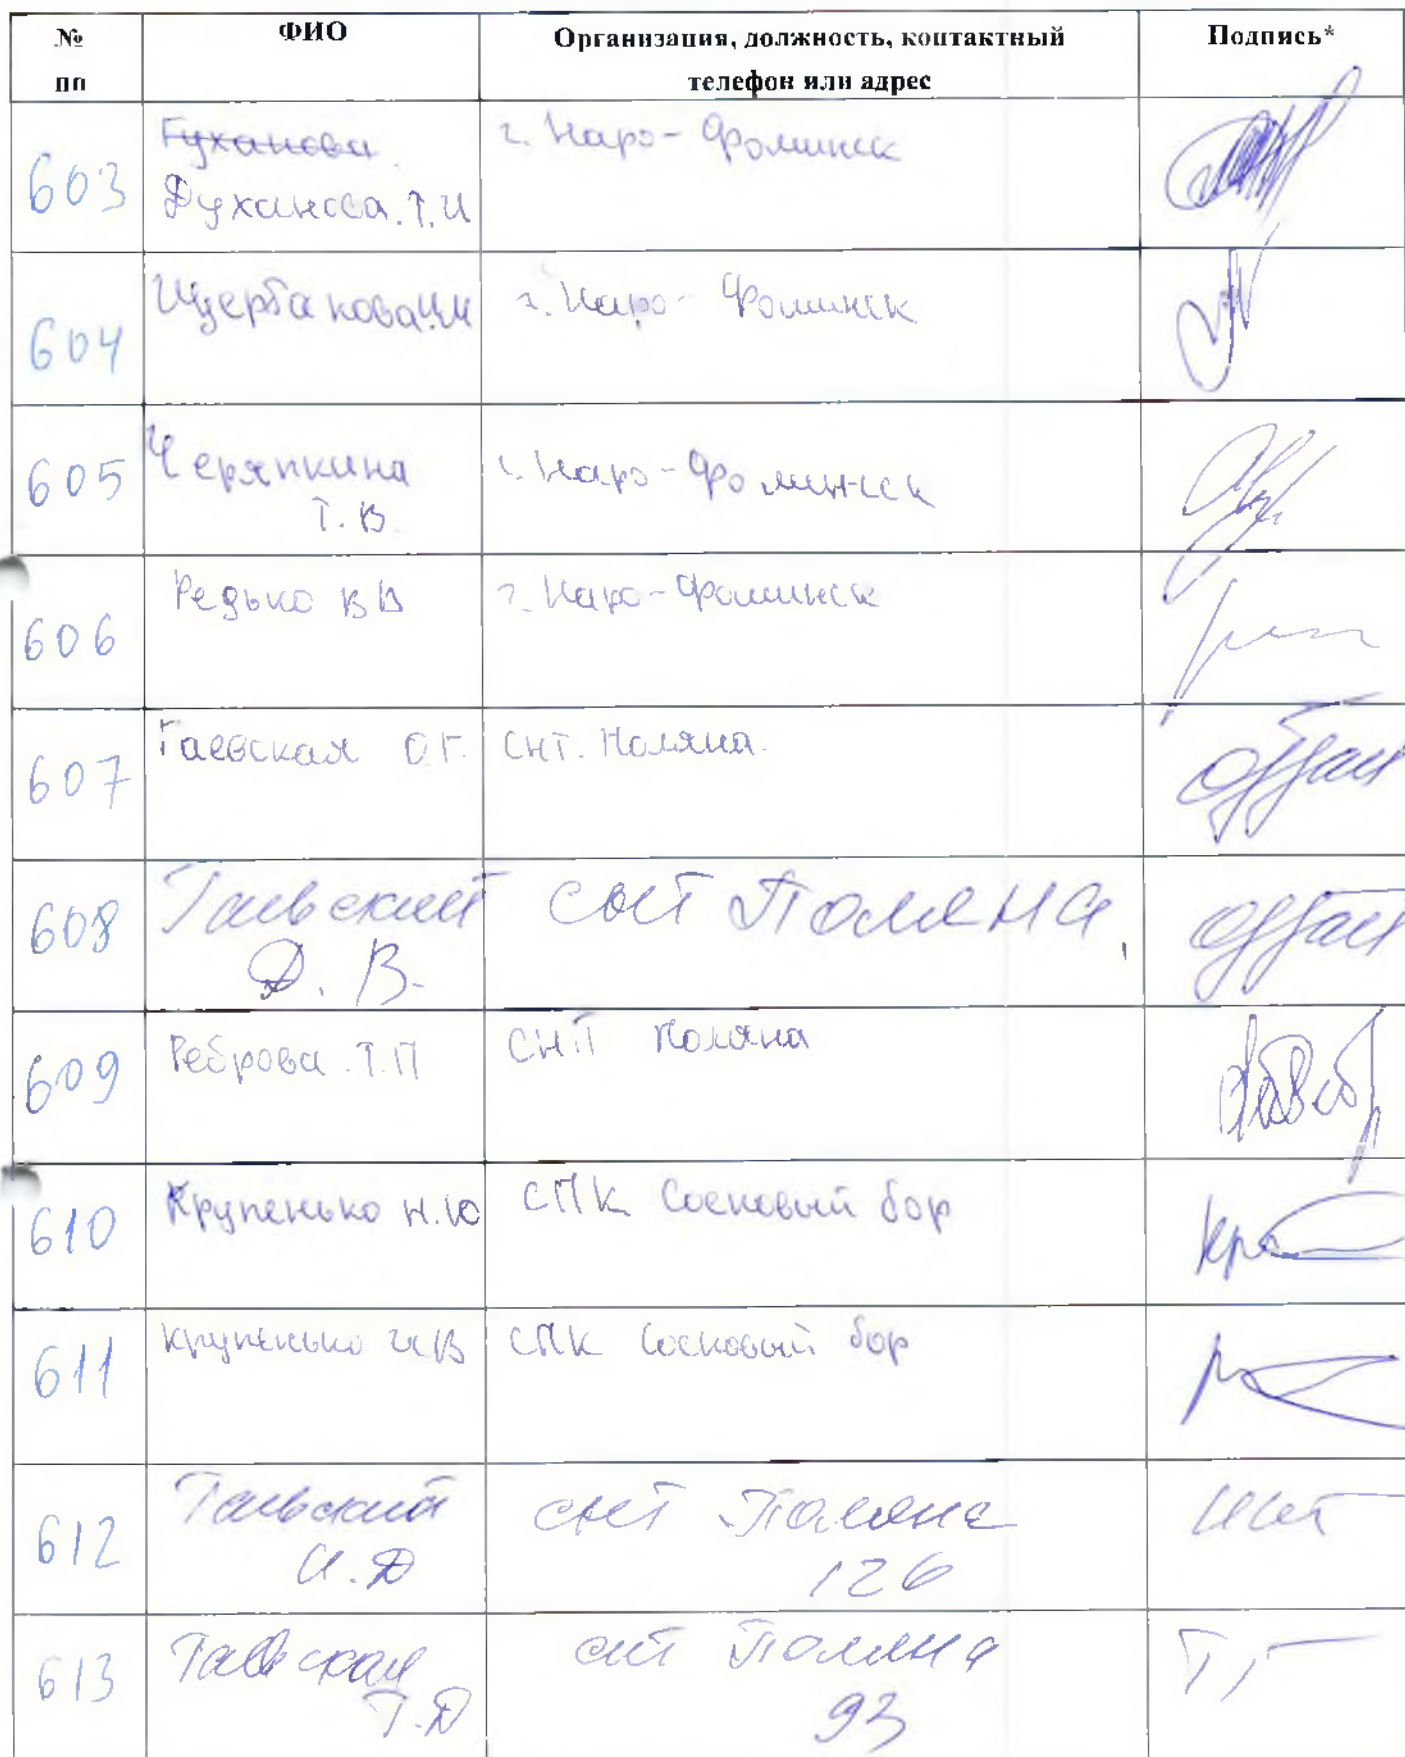 № пп ФИО Организация, должность, контактный телефон или адрес Подпись*
603 Духанова. Т.И г. Наро-Фоминск
604 Щербакова г. Наро-Фоминск
605 Черяпкина Т.В. г. Наро-Фоминск
606 Редько В В г. Наро-Фоминск
607 Гаевская О.Г. СНТ. Поляна.
608 Гаевский Д. В. СНТ Поляна
609 Реброва Т.П СНТ Поляна
610 Крупенько Н.Ю СПК Сосновый бор
611 Крупенько И В СПК Сосновый бор
612 Гаевский И.Д снт Поляна 126
613 Гаевская Т.Д снт Поляна 93